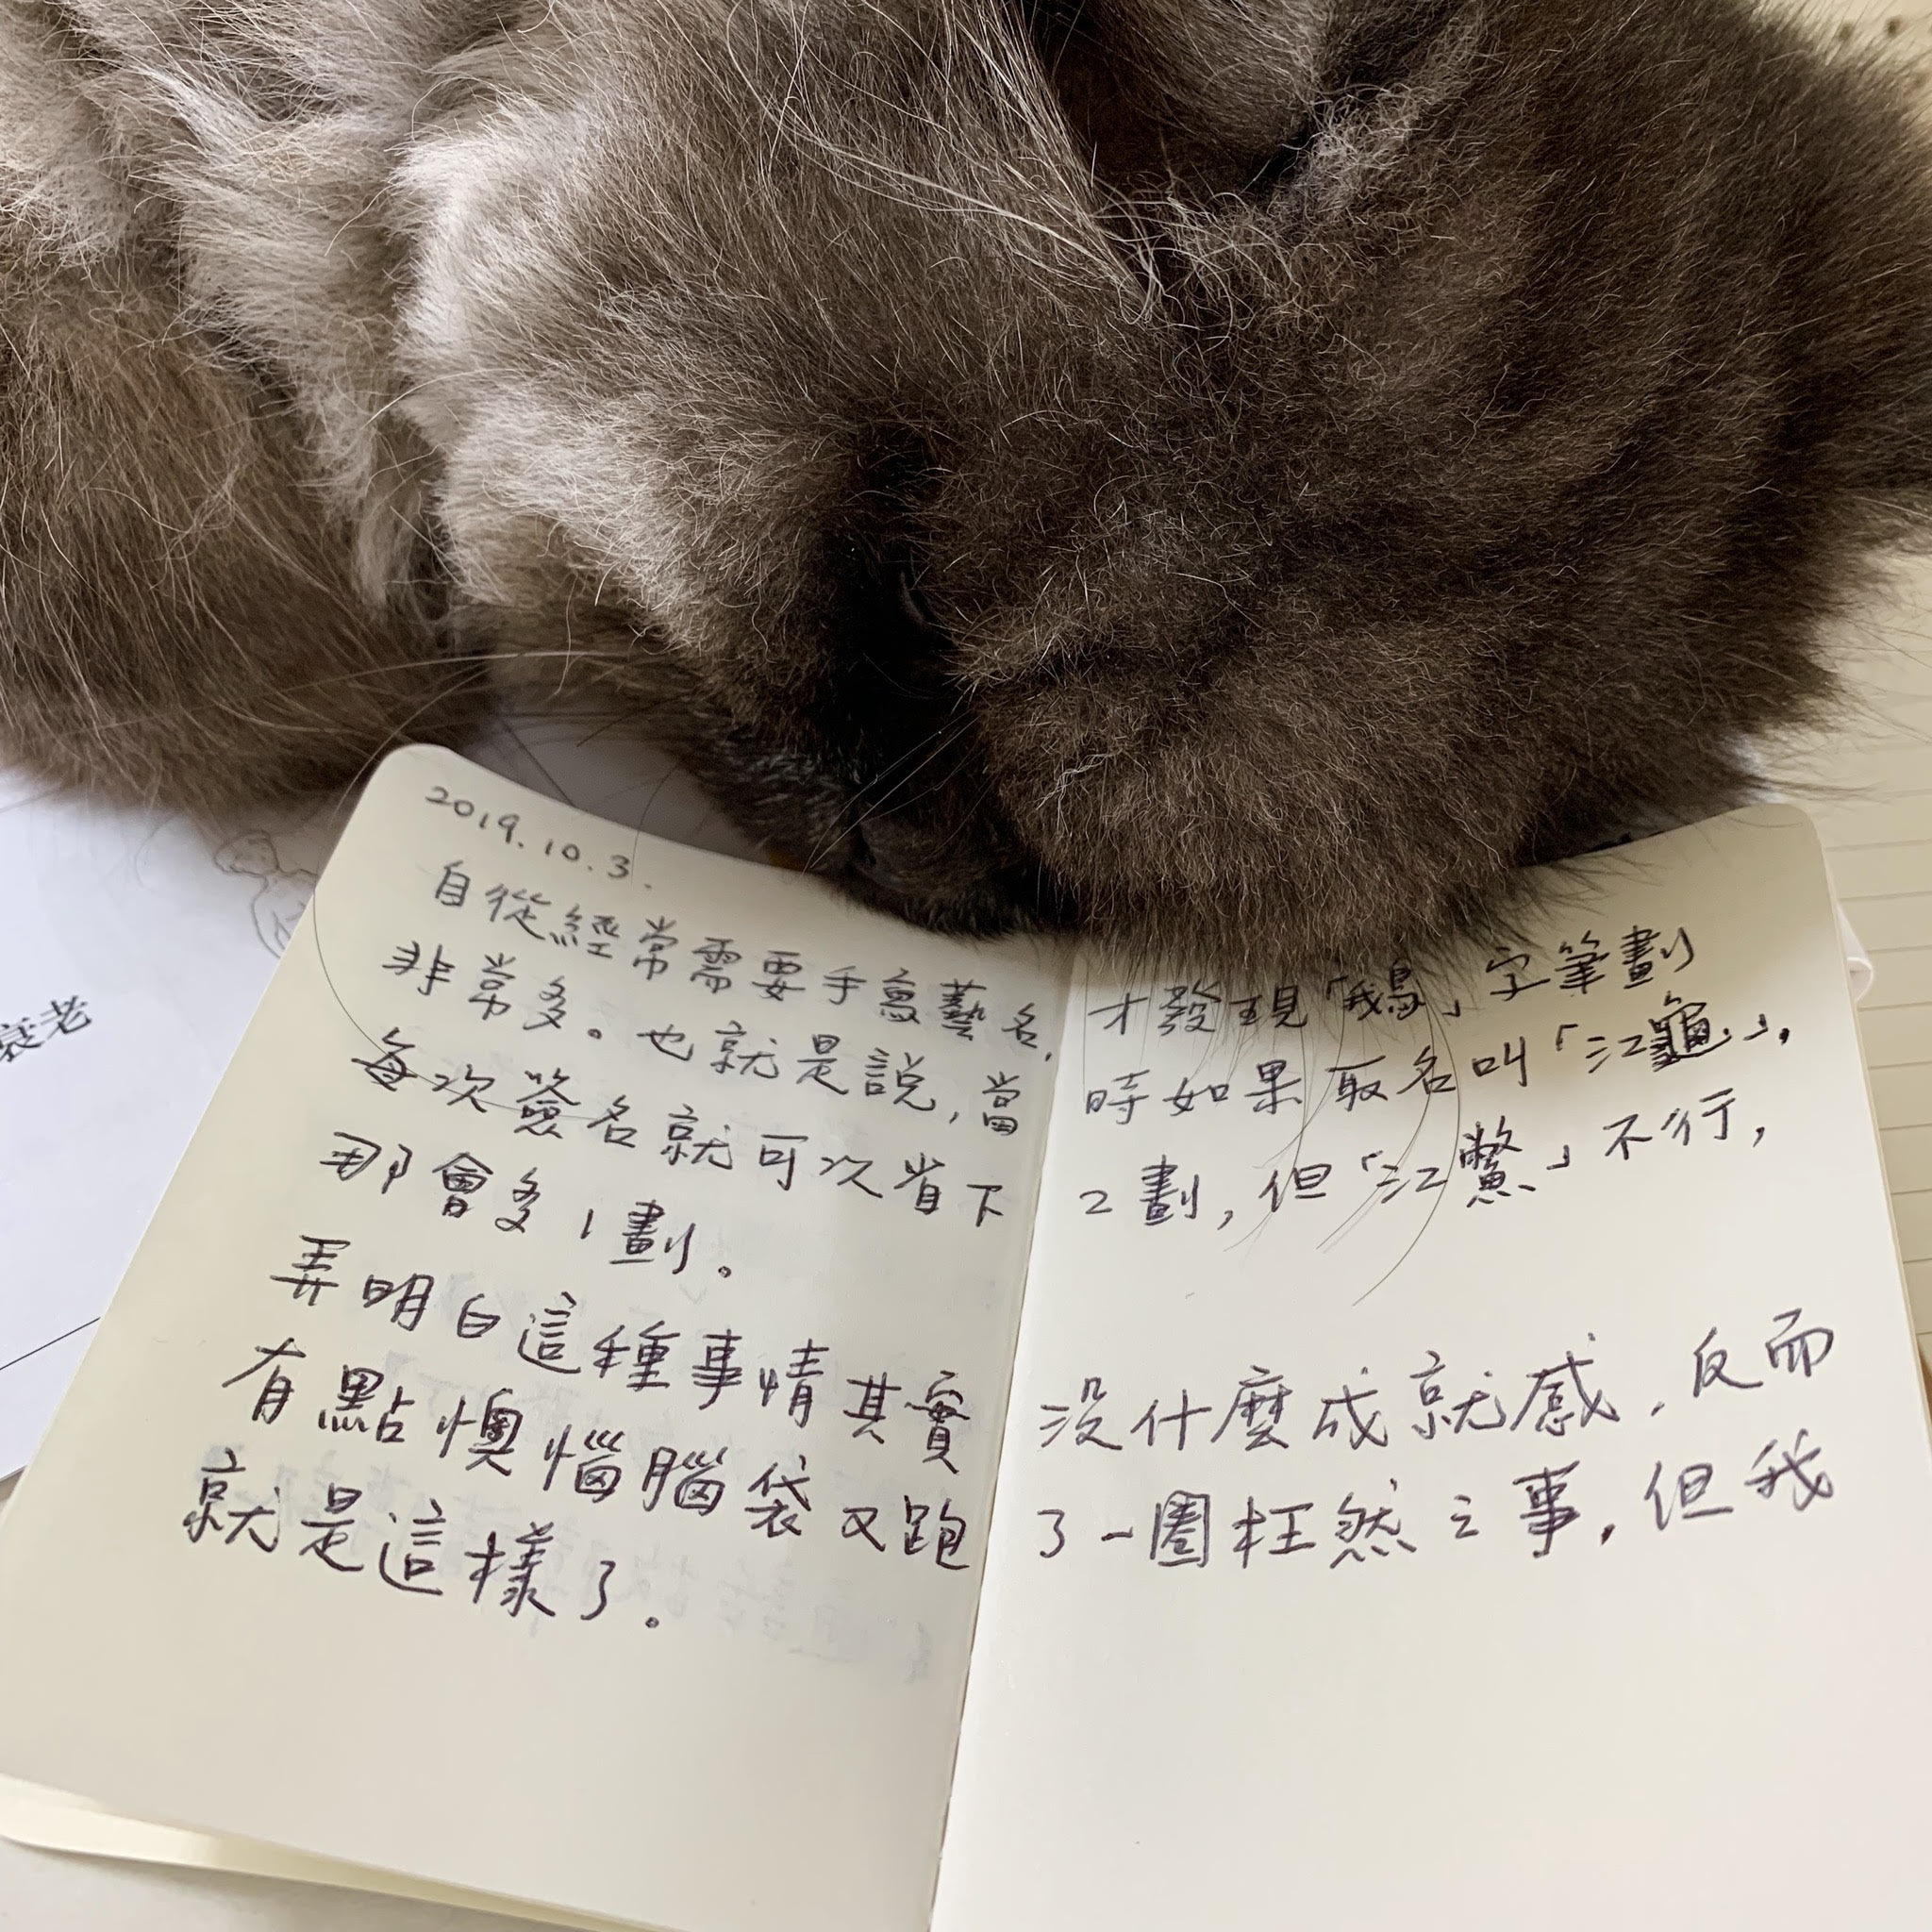 2019.10.3.
自從經常需要手寫藝名,才發現「鵝」字筆劃
非常多。也就是說,當時如果取名叫「江龜」,
每次簽名就可以省下2劃,但「江鱉」不行,
那會多1劃。
弄明白這種事情其實沒什麼成就感,反而
有點懊惱腦袋又跑了一圈枉然之事,但我
就是這樣了。
衰老